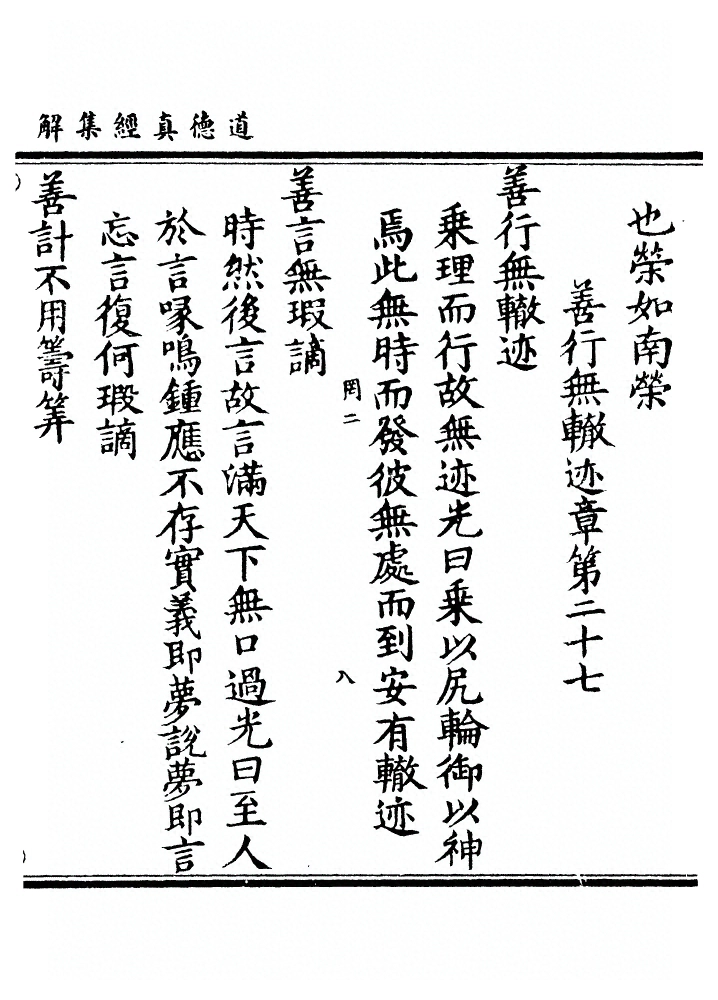 道德真經集解
也榮如南榮
善行無轍迹章第二十七
善行無轍迹
乘理而行故無迹光曰乘以尻輪御以神
馬此無時而發彼無處而到安有轍迹
罔二
八
善言無瑕讁
時然後言故言滿天下無口過光曰至人
於言喙鳴鍾應不存實義即夢說夢即言
忘言復何瑕讁
善計不用籌筭